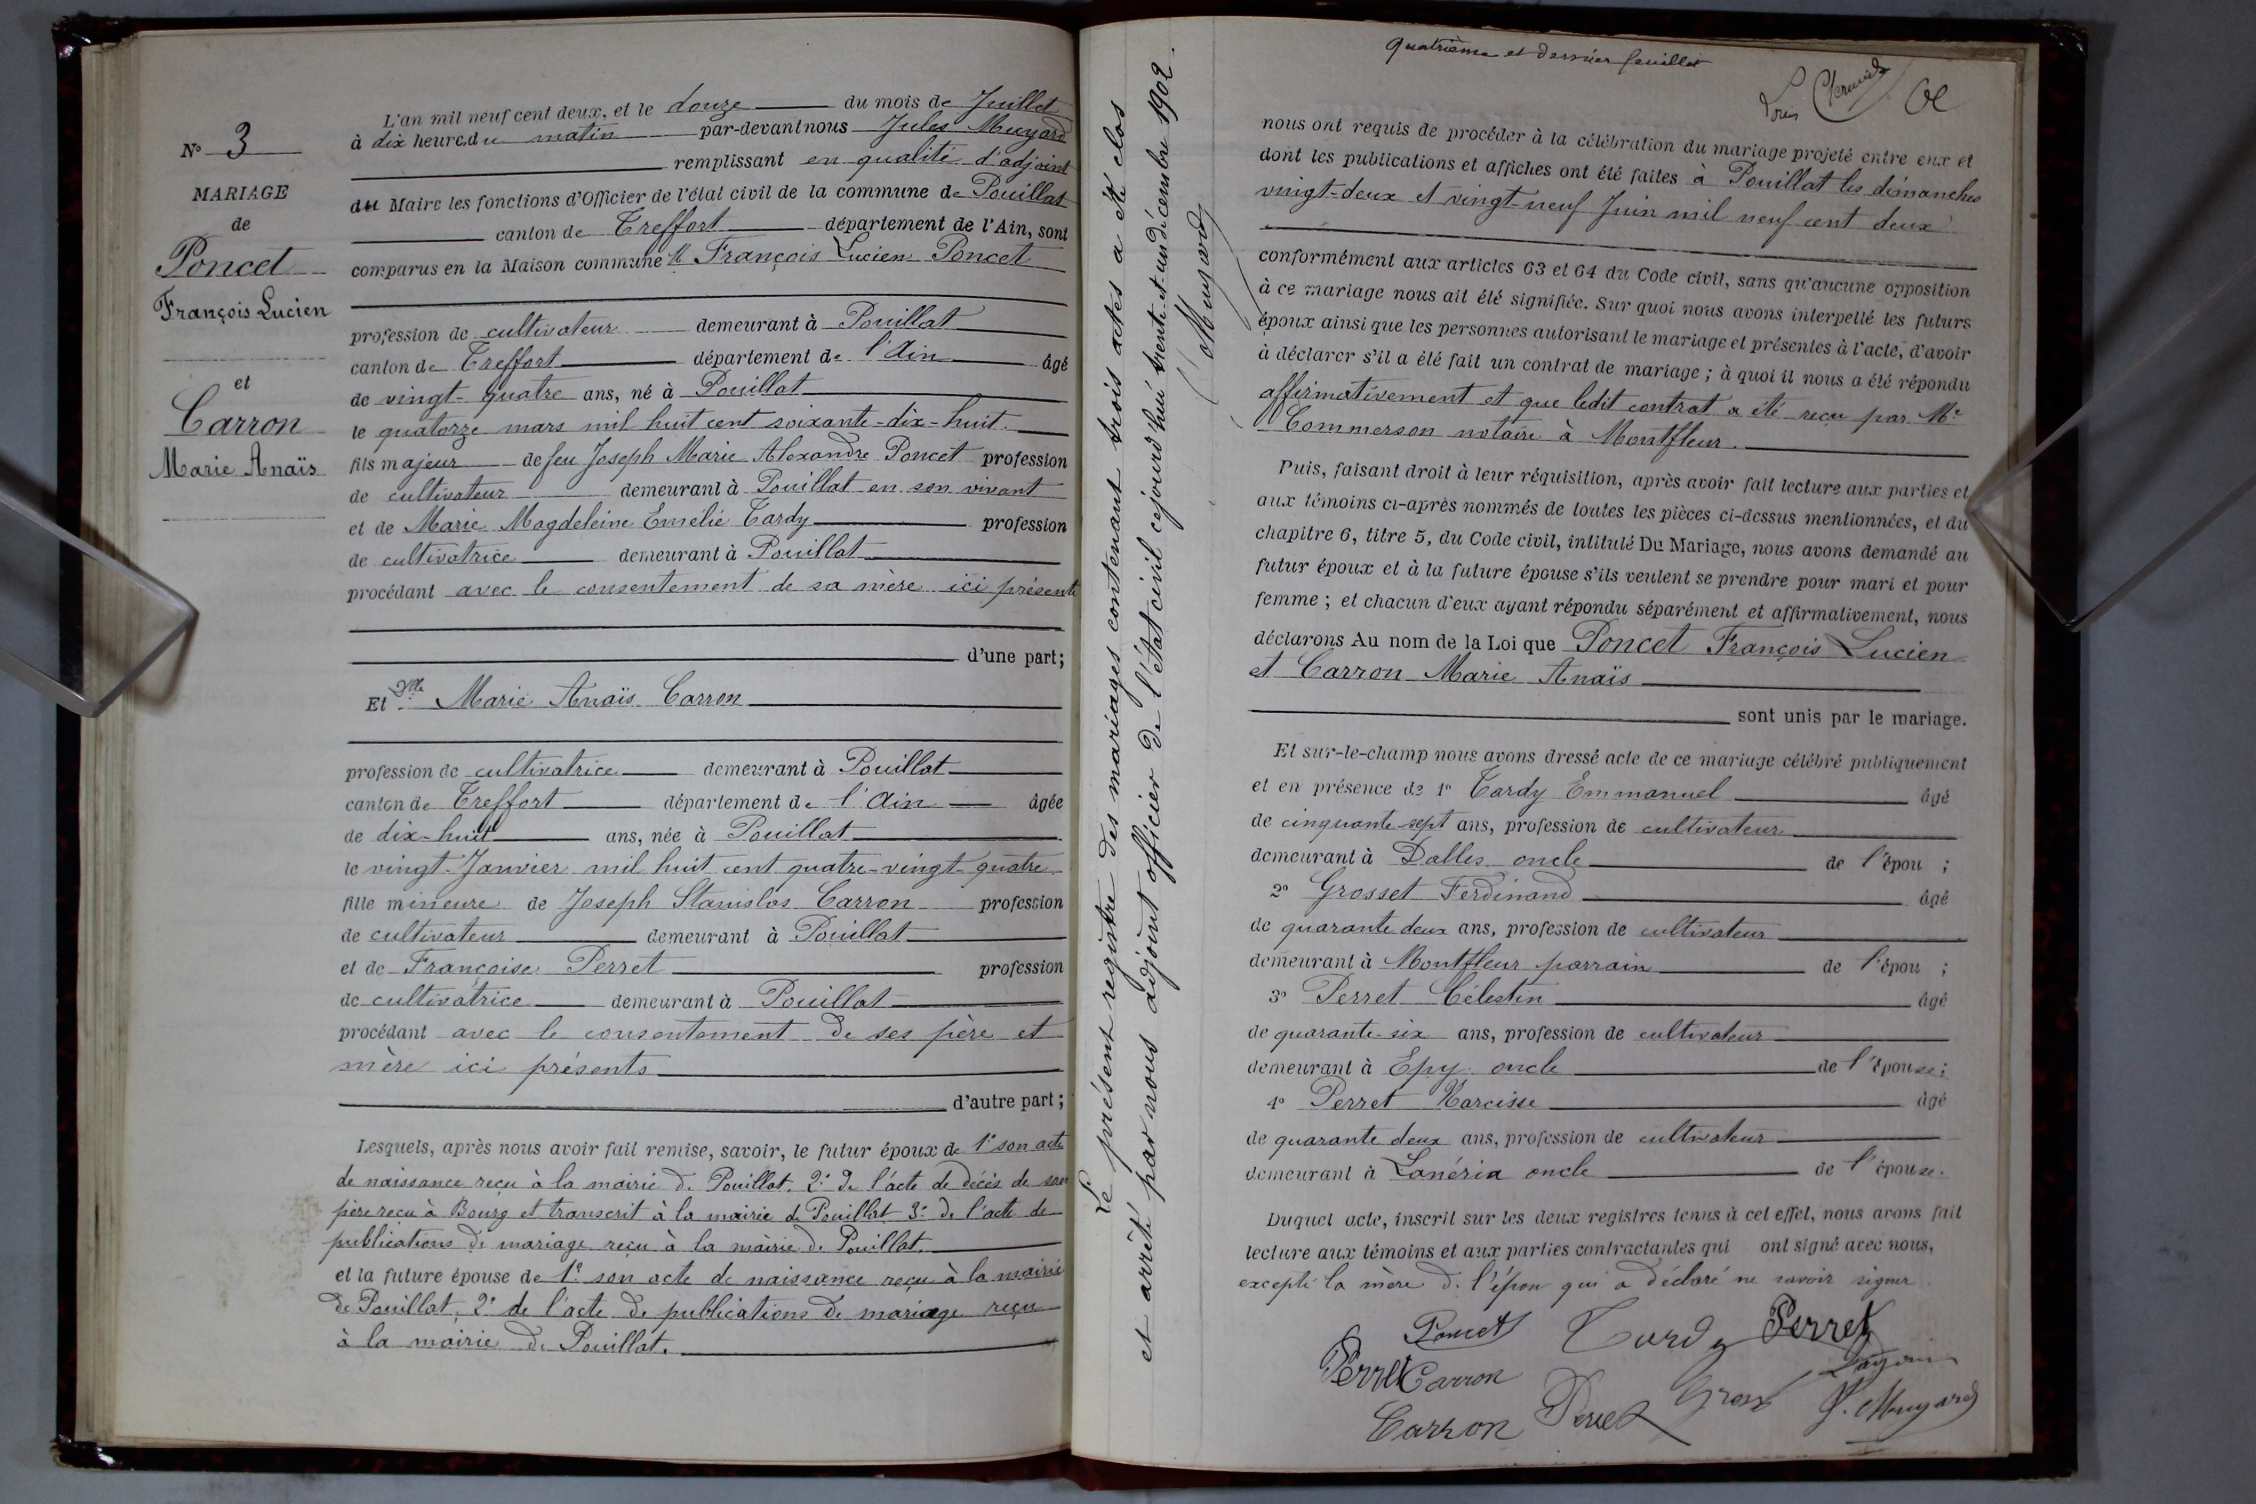 N° 3
MARIAGE
de
Poncet
François Lucien
et
Carron
Marie Anaïs
L'an mil neuf cent deux, et le douze du mois de Juillet
à dix heures du matin par-devant nous Jules Muyard
remplissant en qualité d'adjoint
au Maire les fonctions d'Officier de l'état civil de la commune de Pouillat
canton de Treffort département de l'Ain, sont
comparus en la Maison commune M François Lucien Poncet
profession de cultivateur demeurant à Pouillat
canton de Treffort département de l'Ain âgé
de vingt-quatre ans, né à Pouillat
le quatorze mars mil huit cent soixante-dix-huit.
fils majeur de feu Joseph Marie Alexandre Poncet profession
de cultivateur demeurant à Pouillat en son vivant
et de Marie Magdeleine Emélie Tardy profession
de cultivatrice demeurant à Pouillat
procédant avec le consentement de sa mère ici présente
d'une part;
Et Dlle Marie Anaïs Carron
profession de cultivatrice demeurant à Pouillat
canton de Treffort département de l'Ain âgée
de dix-huit ans, née à Pouillat
le vingt Janvier mil huit cent quatre-vingt-quatre
fille mineure de Joseph Stanislas Carron profession
de cultivateur demeurant à Pouillat
et de Françoise Perret profession
de cultivatrice demeurant à Pouillat
procédant avec le consentement de ses père et
mère ici présents
d'autre part;
Lesquels, après nous avoir fait remise, savoir, le futur époux de 1° son acte
de naissance reçu à la mairie de Pouillat. 2° de l'acte de décès de son
père reçu à Bourg et transcrit à la mairie de Pouillat 3° de l'acte de
publications de mariage reçu à la mairie de Pouillat.
et la future épouse de 1° son acte de naissance reçu à la mairie
de Pouillat, 2° de l'acte de publications de mariage reçu
à la mairie de Pouillat.
Le présent registre des mariages contenant trois actes a été clos
et arrêté par nous adjoint officier de l'état civil cejourd'hui trente-et-un décembre 1902.
Muyard
quatrième et dernier feuillet
Louis
nous ont requis de procéder à la célébration du mariage projeté entre eux et
dont les publications et affiches ont été faites à Pouillat les dimanches
vingt-deux et vingt-neuf Juin mil neuf cent deux
conformément aux articles 63 et 64 du Code civil, sans qu'aucune opposition
à ce mariage nous ait été signifiée. Sur quoi nous avons interpellé les futurs
époux ainsi que les personnes autorisant le mariage et présentes à l'acte, d'avoir
à déclarer s'il a été fait un contrat de mariage; à quoi il nous a été répondu
affirmativement et que ledit contrat a été reçu par Me
Commerson notaire à Montfleur.
Puis, faisant droit à leur réquisition, après avoir fait lecture aux parties et
aux témoins ci-après nommés de toutes les pièces ci-dessus mentionnées, et du
chapitre 6, titre 5, du Code civil, intitulé Du Mariage, nous avons demandé au
futur époux et à la future épouse s'ils veulent se prendre pour mari et pour
femme; et chacun d'eux ayant répondu séparément et affirmativement, nous
déclarons Au nom de la Loi que Poncet François Lucien
et Carron Marie Anaïs
sont unis par le mariage.
Et sur-le-champ nous avons dressé acte de ce mariage célébré publiquement
et en présence de 1° Tardy Emmanuel âgé
de cinquante-sept ans, profession de cultivateur
demeurant à Dalles oncle de l'épou ;
2° Grosset Ferdinand âgé
de quarante deux ans, profession de cultivateur
demeurant à Montfleur parrain de l'épou ;
3° Perret Célestin âgé
de quarante-six ans, profession de cultivateur
demeurant à Epy oncle de l'épouse;
4° Perret Narcisse âgé
de quarante deux ans, profession de cultivateur
demeurant à Lanéria oncle de l'épouse.
Duquel acte, inscrit sur les deux registres tenus à cet effet, nous avons fait
lecture aux témoins et aux parties contractantes qui ont signé avec nous,
excepté la mère de l'épou qui a déclaré ne savoir signer
Poncet Tardy Perret
Perret Carron
Carron Perret J. Muyard